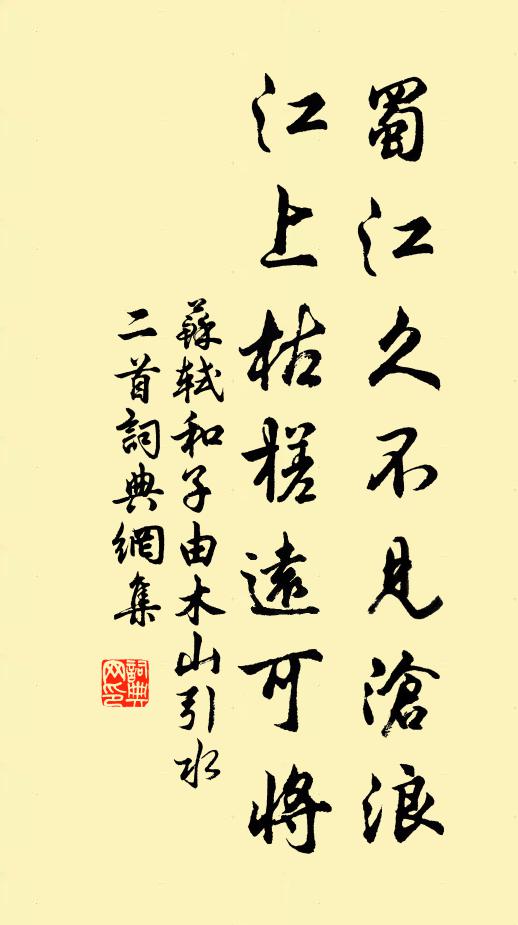 蜀江久不見滄浪
江上枯槎遠可將
蘇軾和子由木山引水
二首詞典網集
詞典网印